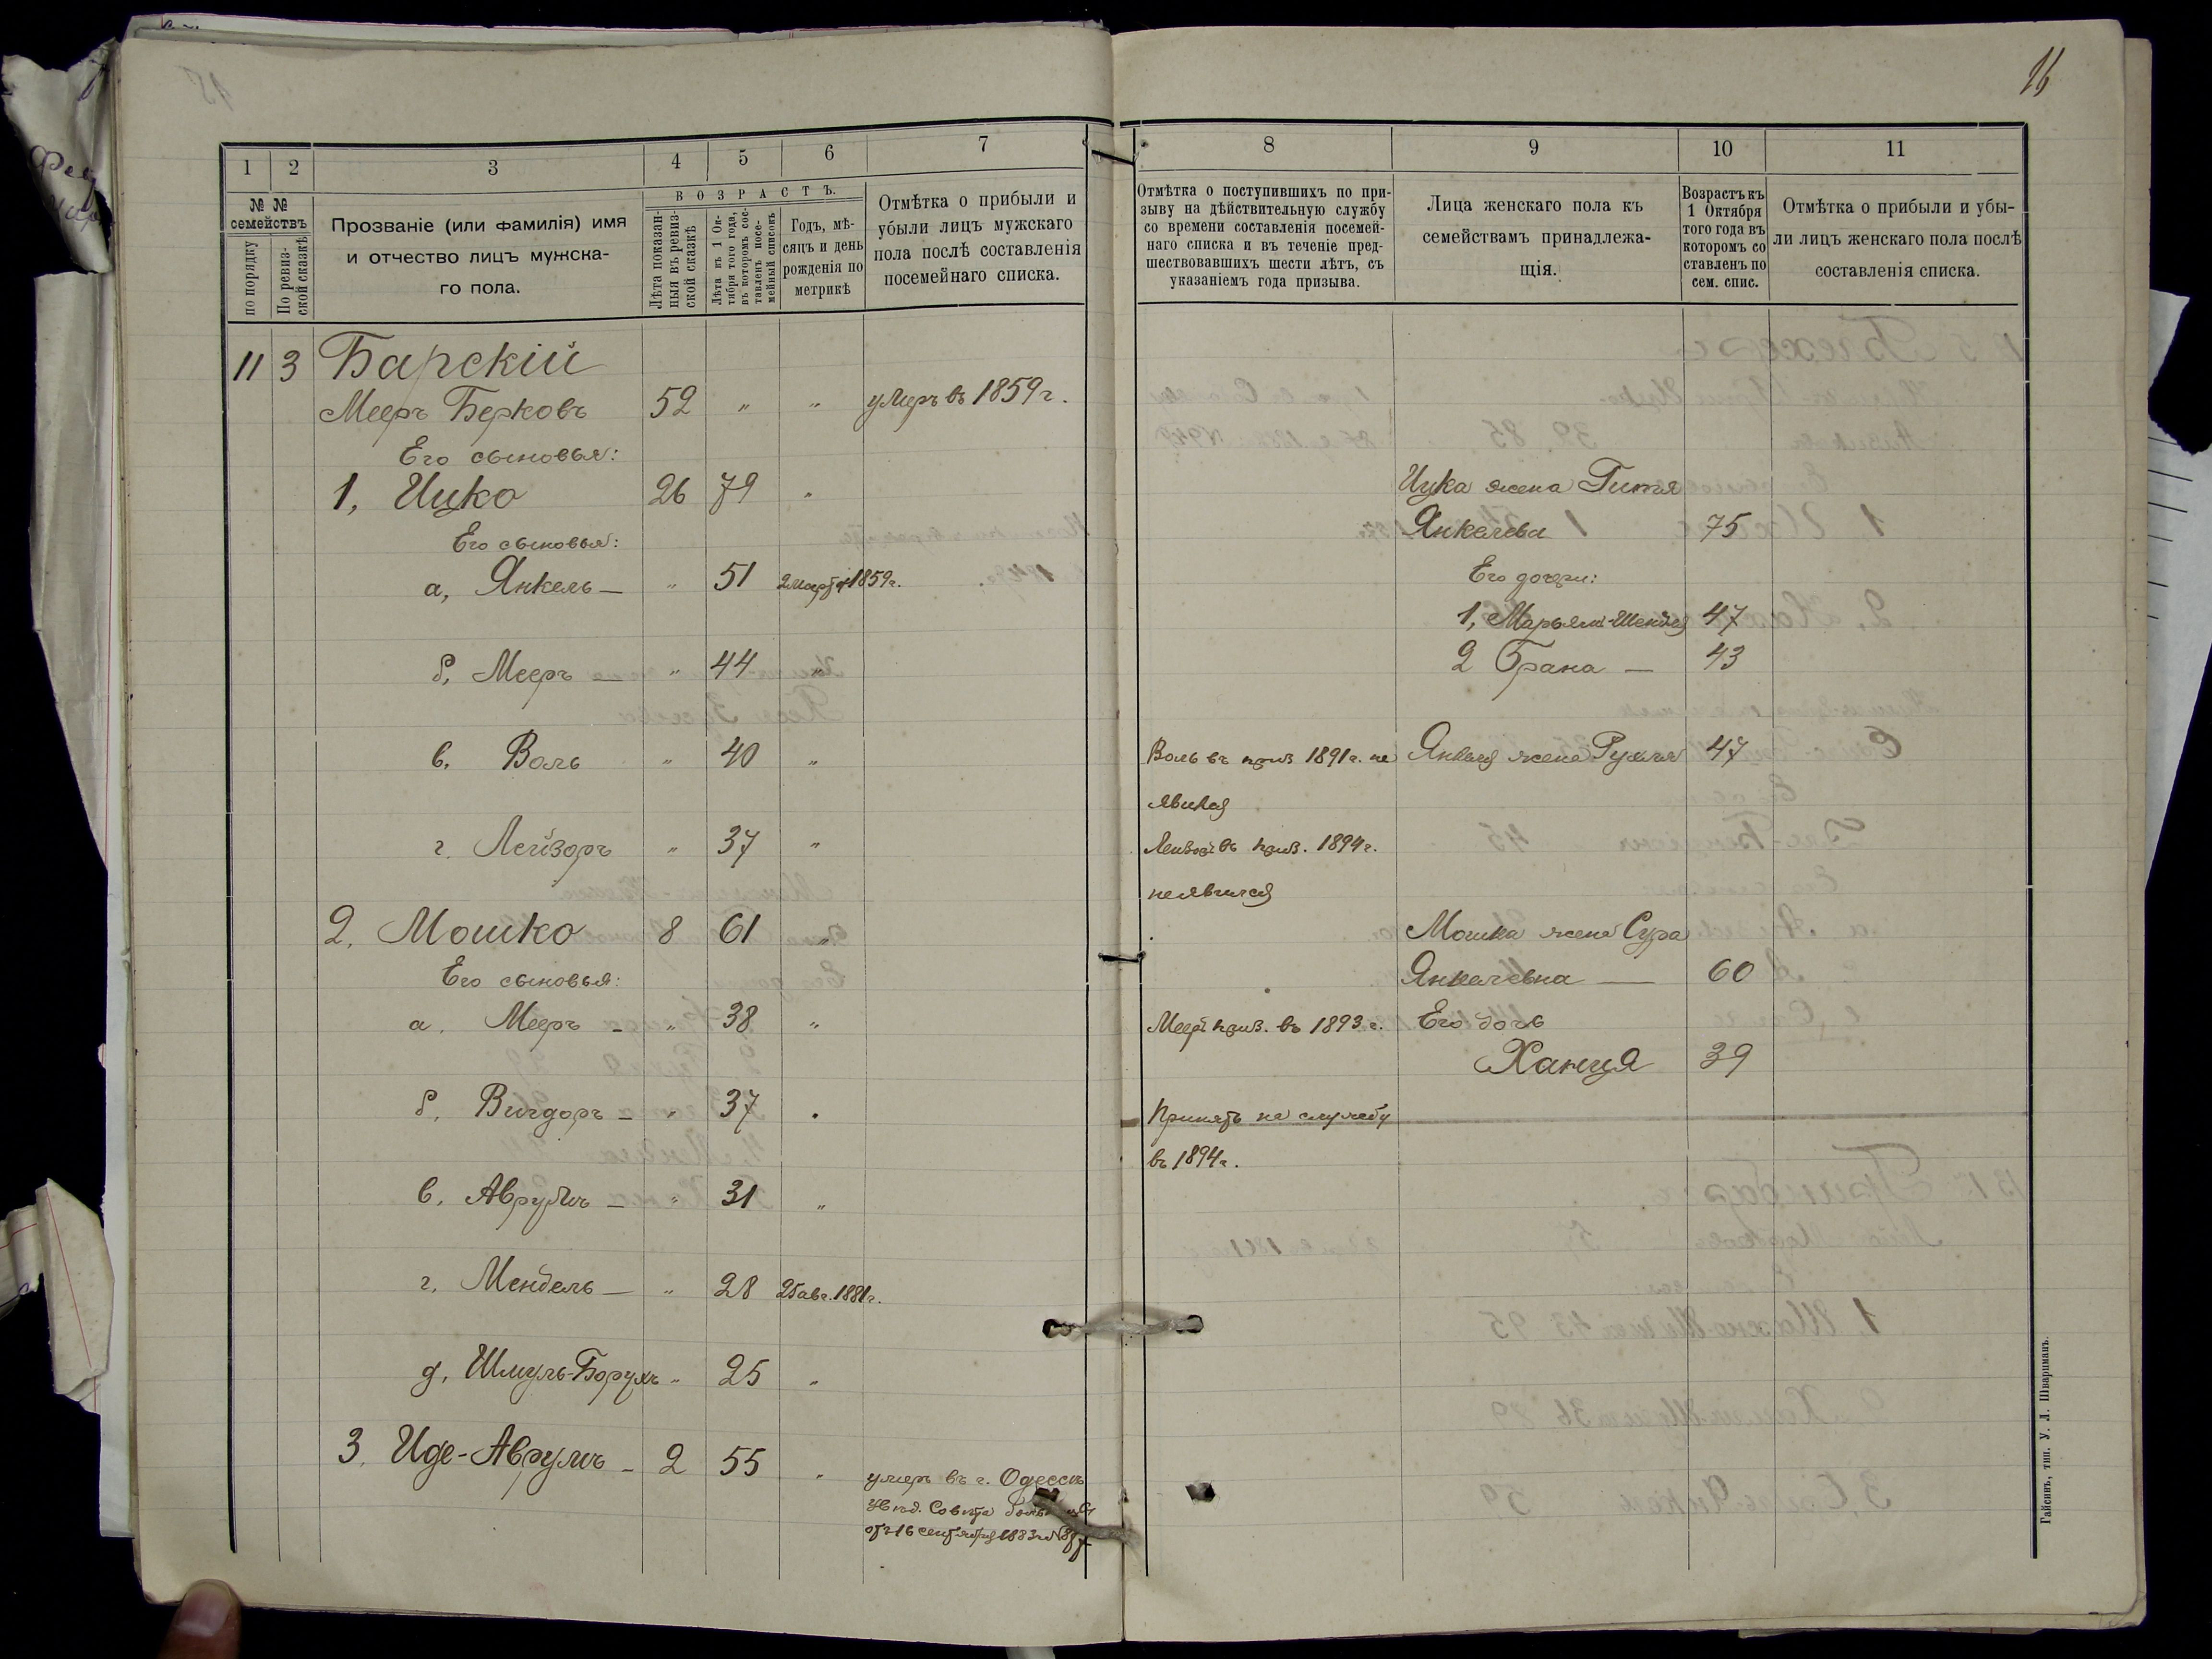 16
1 2 3 4 5 6 7
№ № семействъ
по порядку
По ревизской сказкѣ
Прозваніе (или фамилія) имя
и отчество лицъ мужска-
го пола.
ВОЗРАСТЪ.
Лѣта показан-
ныя въ ревиз-
ской сказкѣ
Лѣта къ 1 Ок-
тября того года,
въ которомъ сос-
тавленъ посе-
мейный списокъ
Годъ, мѣ-
сяцъ и день
рожденія по
метрикѣ
Отмѣтка о прибыли и
убыли лицъ мужскаго
пола послѣ составленія
посемейнаго списка.
11 3 Барскій
Мееръ Берковъ 52 " " умеръ въ 1859 г.
Его сыновья:
1, Ицко 26 79 "
Его сыновья:
а, Янкель — " 51 2 марта 1859 г.
б, Мееръ — " 44 "
в, Воль " 40 "
г. Лейзоръ " 37 "
2, Мошко 8 61 "
Его сыновья:
а. Мееръ — " 38 "
б, Вигдоръ — " 37 "
в, Аврумъ — " 31 "
г, Мендель — " 28 25 авг. 1881 г.
д, Шмуль-Борухъ " 25 "
3, Иде-Аврумъ — 2 55 " умеръ въ г. Одессѣ
увѣд. Совѣта
отъ 16 сентября 1883 г. №
8 9 10 11
Отмѣтка о поступившихъ по при-
зыву на дѣйствительную службу
со времени составленія посемей-
наго списка и въ теченіе пред-
шествовавшихъ шести лѣтъ, съ
указаніемъ года призыва.
Лица женскаго пола къ
семействамъ принадлежа-
щія.
Возрастъ къ
1 Октября
того года въ
которомъ со
ставленъ по
сем. спис.
Отмѣтка о прибыли и убы-
ли лицъ женскаго пола послѣ
составленія списка.
Ицка жена Гитля
Янкелева 75
Его дочери:
1, Марьям-Шейндля 47
2 Брана — 43
Воль въ приз 1891 г. не Янкеля жена Рухля 47
явился
Лейзоръ въ приз. 1894 г.
неявился
Мошка жена Сура
Янкелевна — 60
Мееръ приз. въ 1893 г. Его дочь
Ханця 39
Принятъ на службу
въ 1894 г.
Гайсинъ, тип. У. Л. Шварцманъ.